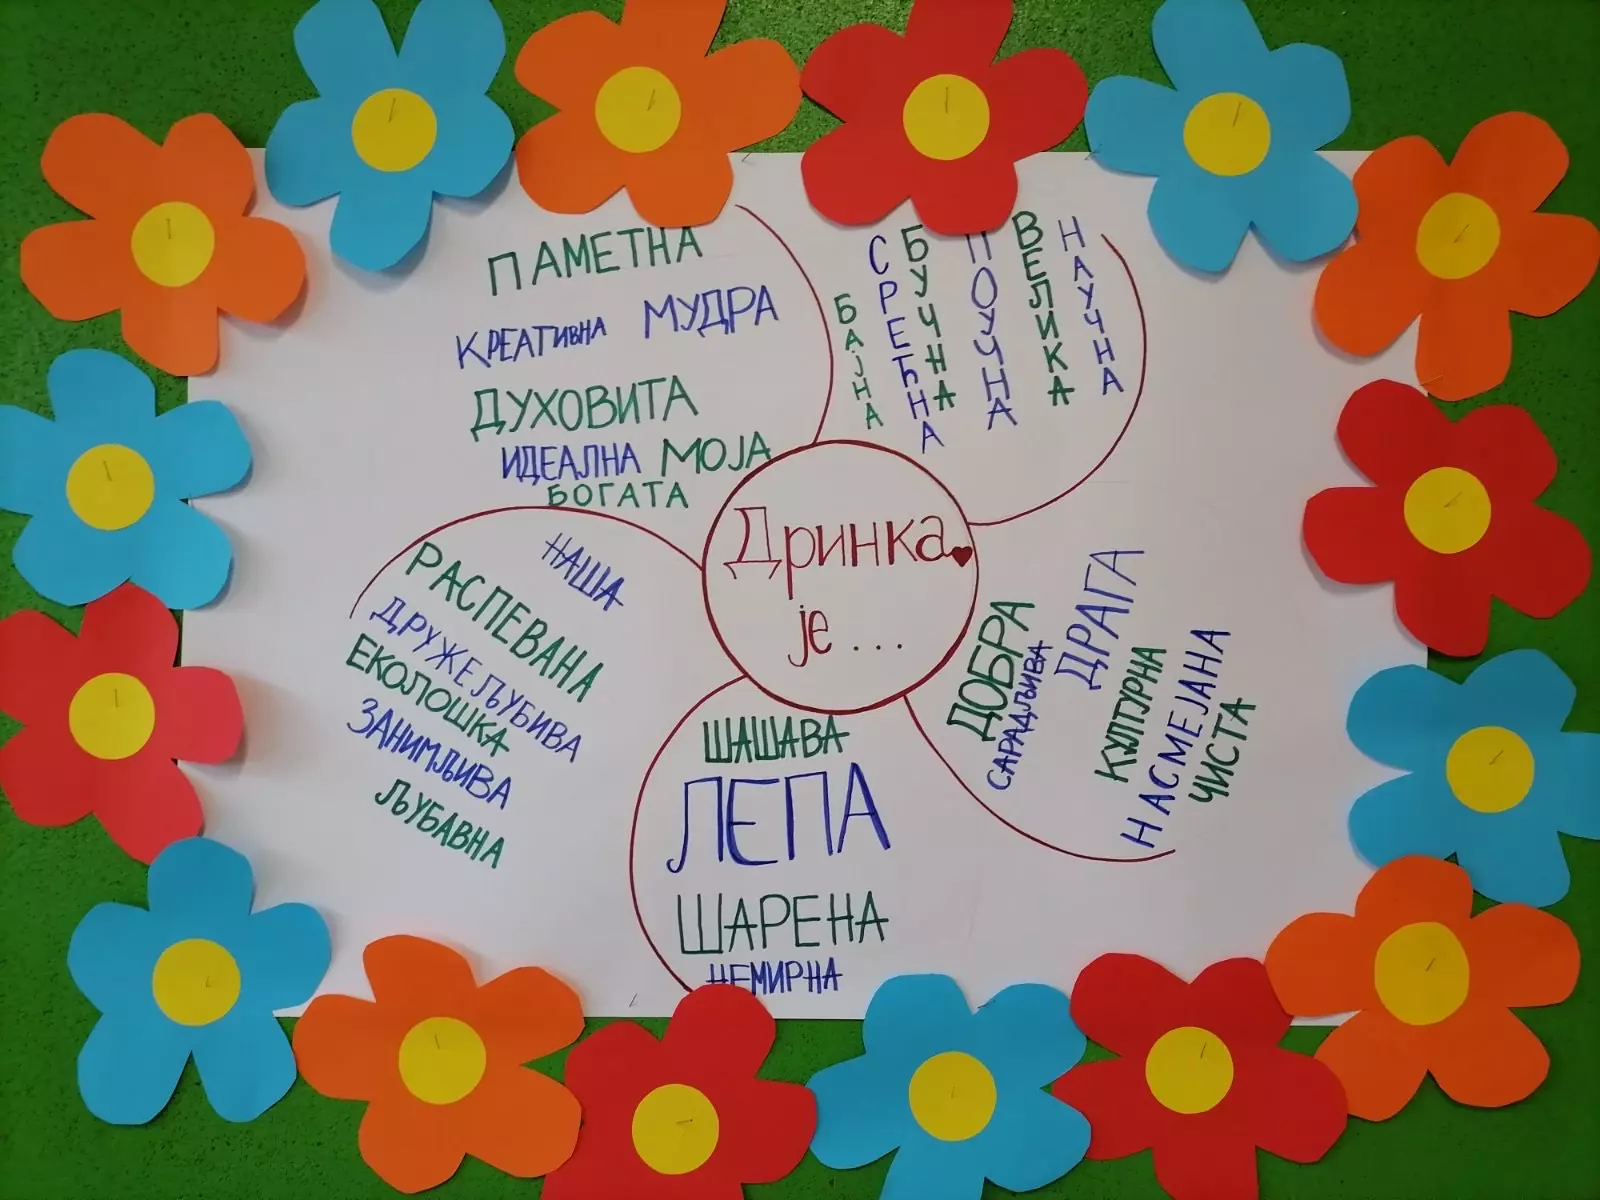 ПАМЕТНА
КРЕАТИВНА МУДРА
ДУХОВИТА
ИДЕАЛНА МОЈА
БОГАТА
БАЈНА
СРЕЋНА
БУЧНА
ПОУЧНА
ВЕЛИКА
НАУЧНА
Дринка
је ...
НАША
РАСПЕВАНА
ДРУЖЕЉУБИВА
ЕКОЛОШКА
ЗАНИМЉИВА
ЉУБАВНА
ШАШАВА
ЛЕПА
ШАРЕНА
НЕМИРНА
ДОБРА
САРАДЉИВА
ДРАГА
КУЛТУРНА
НАСМЕЈАНА
ЧИСТА